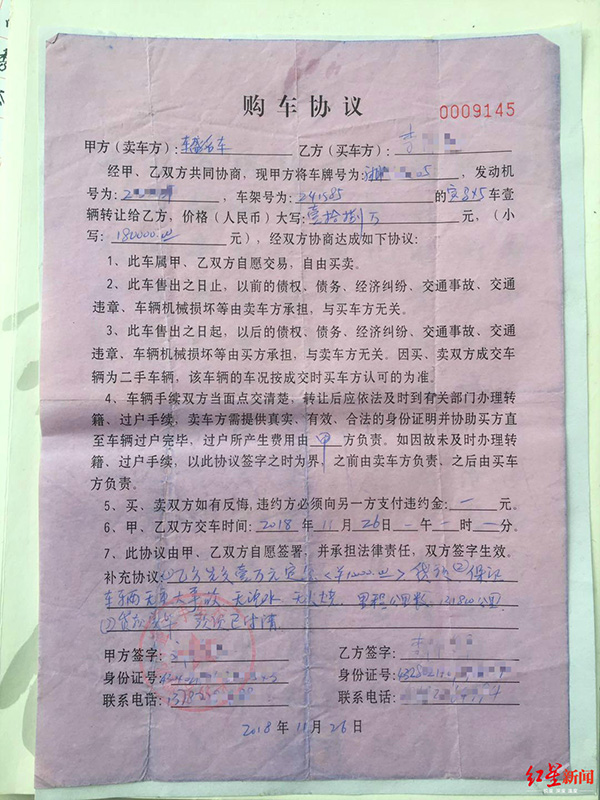 购车协议
0009145
甲方（卖车方）： 乙方（买车方）：李
经甲、乙双方共同协商，现甲方将车牌号为： 05，发动机
号为：2 ，车架号为：241585 的宝马X5车壹
辆转让给乙方，价格（人民币）大写：壹拾捌万 元，（小
写：180000.00 元），经双方协商达成如下协议：
1、此车属甲、乙双方自愿交易，自由买卖。
2、此车售出之日止，以前的债权、债务、经济纠纷、交通事故、交通
违章、车辆机械损坏等由卖车方承担，与买车方无关。
3、此车售出之日起，以后的债权、债务、经济纠纷、交通事故、交通
违章、车辆机械损坏等由买方承担，与卖车方无关。因买、卖双方成交车
辆为二手车辆，该车辆的车况按成交时买车方认可的为准。
4、车辆手续双方当面点交清楚，转让后应依法及时到有关部门办理转
籍、过户手续，卖车方需提供真实、有效、合法的身份证明并协助买方直
至车辆过户完毕，过户所产生费用由 甲 方负责。如因故未及时办理转
籍、过户手续，以此协议签字之时为界，之前由卖车方负责，之后由买车
方负责。
5、买、卖双方如有反悔，违约方必须向另一方支付违约金：一元。
6、甲、乙双方交车时间：2018年11月26日一午一时一分。
7、此协议由甲、乙双方自愿签署，并承担法律责任，双方签字生效。
补充协议：①乙方先交壹万元定金 ②保证
车辆无重大事故 无泡水 无火烧，里程公里数，131810公里
甲方签字： 乙方签字：李
身份证号： 身份证号：
联系电话： 联系电话：
2018年11月26日
红星新闻